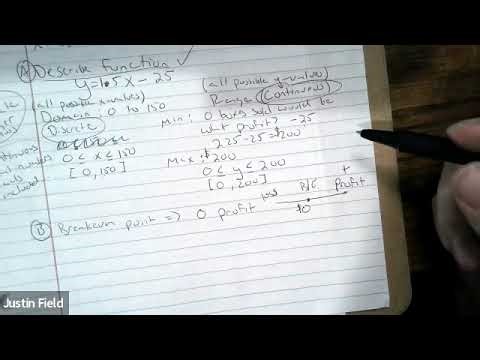 A Describe function ✓
y=1.5x-25
(all possible x values)
Domain: 0 to 150
Discrete
0 ≤ x ≤ 150
[0,150]
(all possible y-values)
Range: (Continuous)
Min: 0 boxes sold would be
what profit? -25
225-25=$200
Max: $200
0 ≤ y ≤ 200
[0,200]
B Breakeven point => 0 profit
loss B/E + Profit
$0
Justin Field